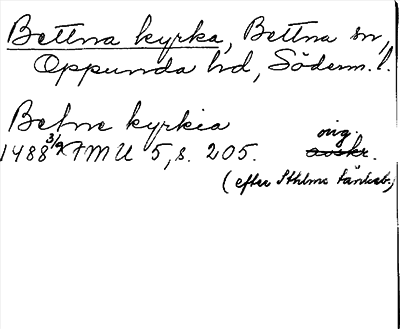 Bettna kyrka, Bettna sn,
Oppunda hd, Söderm. l.
Betne kyrkia
orig.
1488 3/2 FMU 5, s. 205. avskr.
(efter Sthlms tänkeb.)